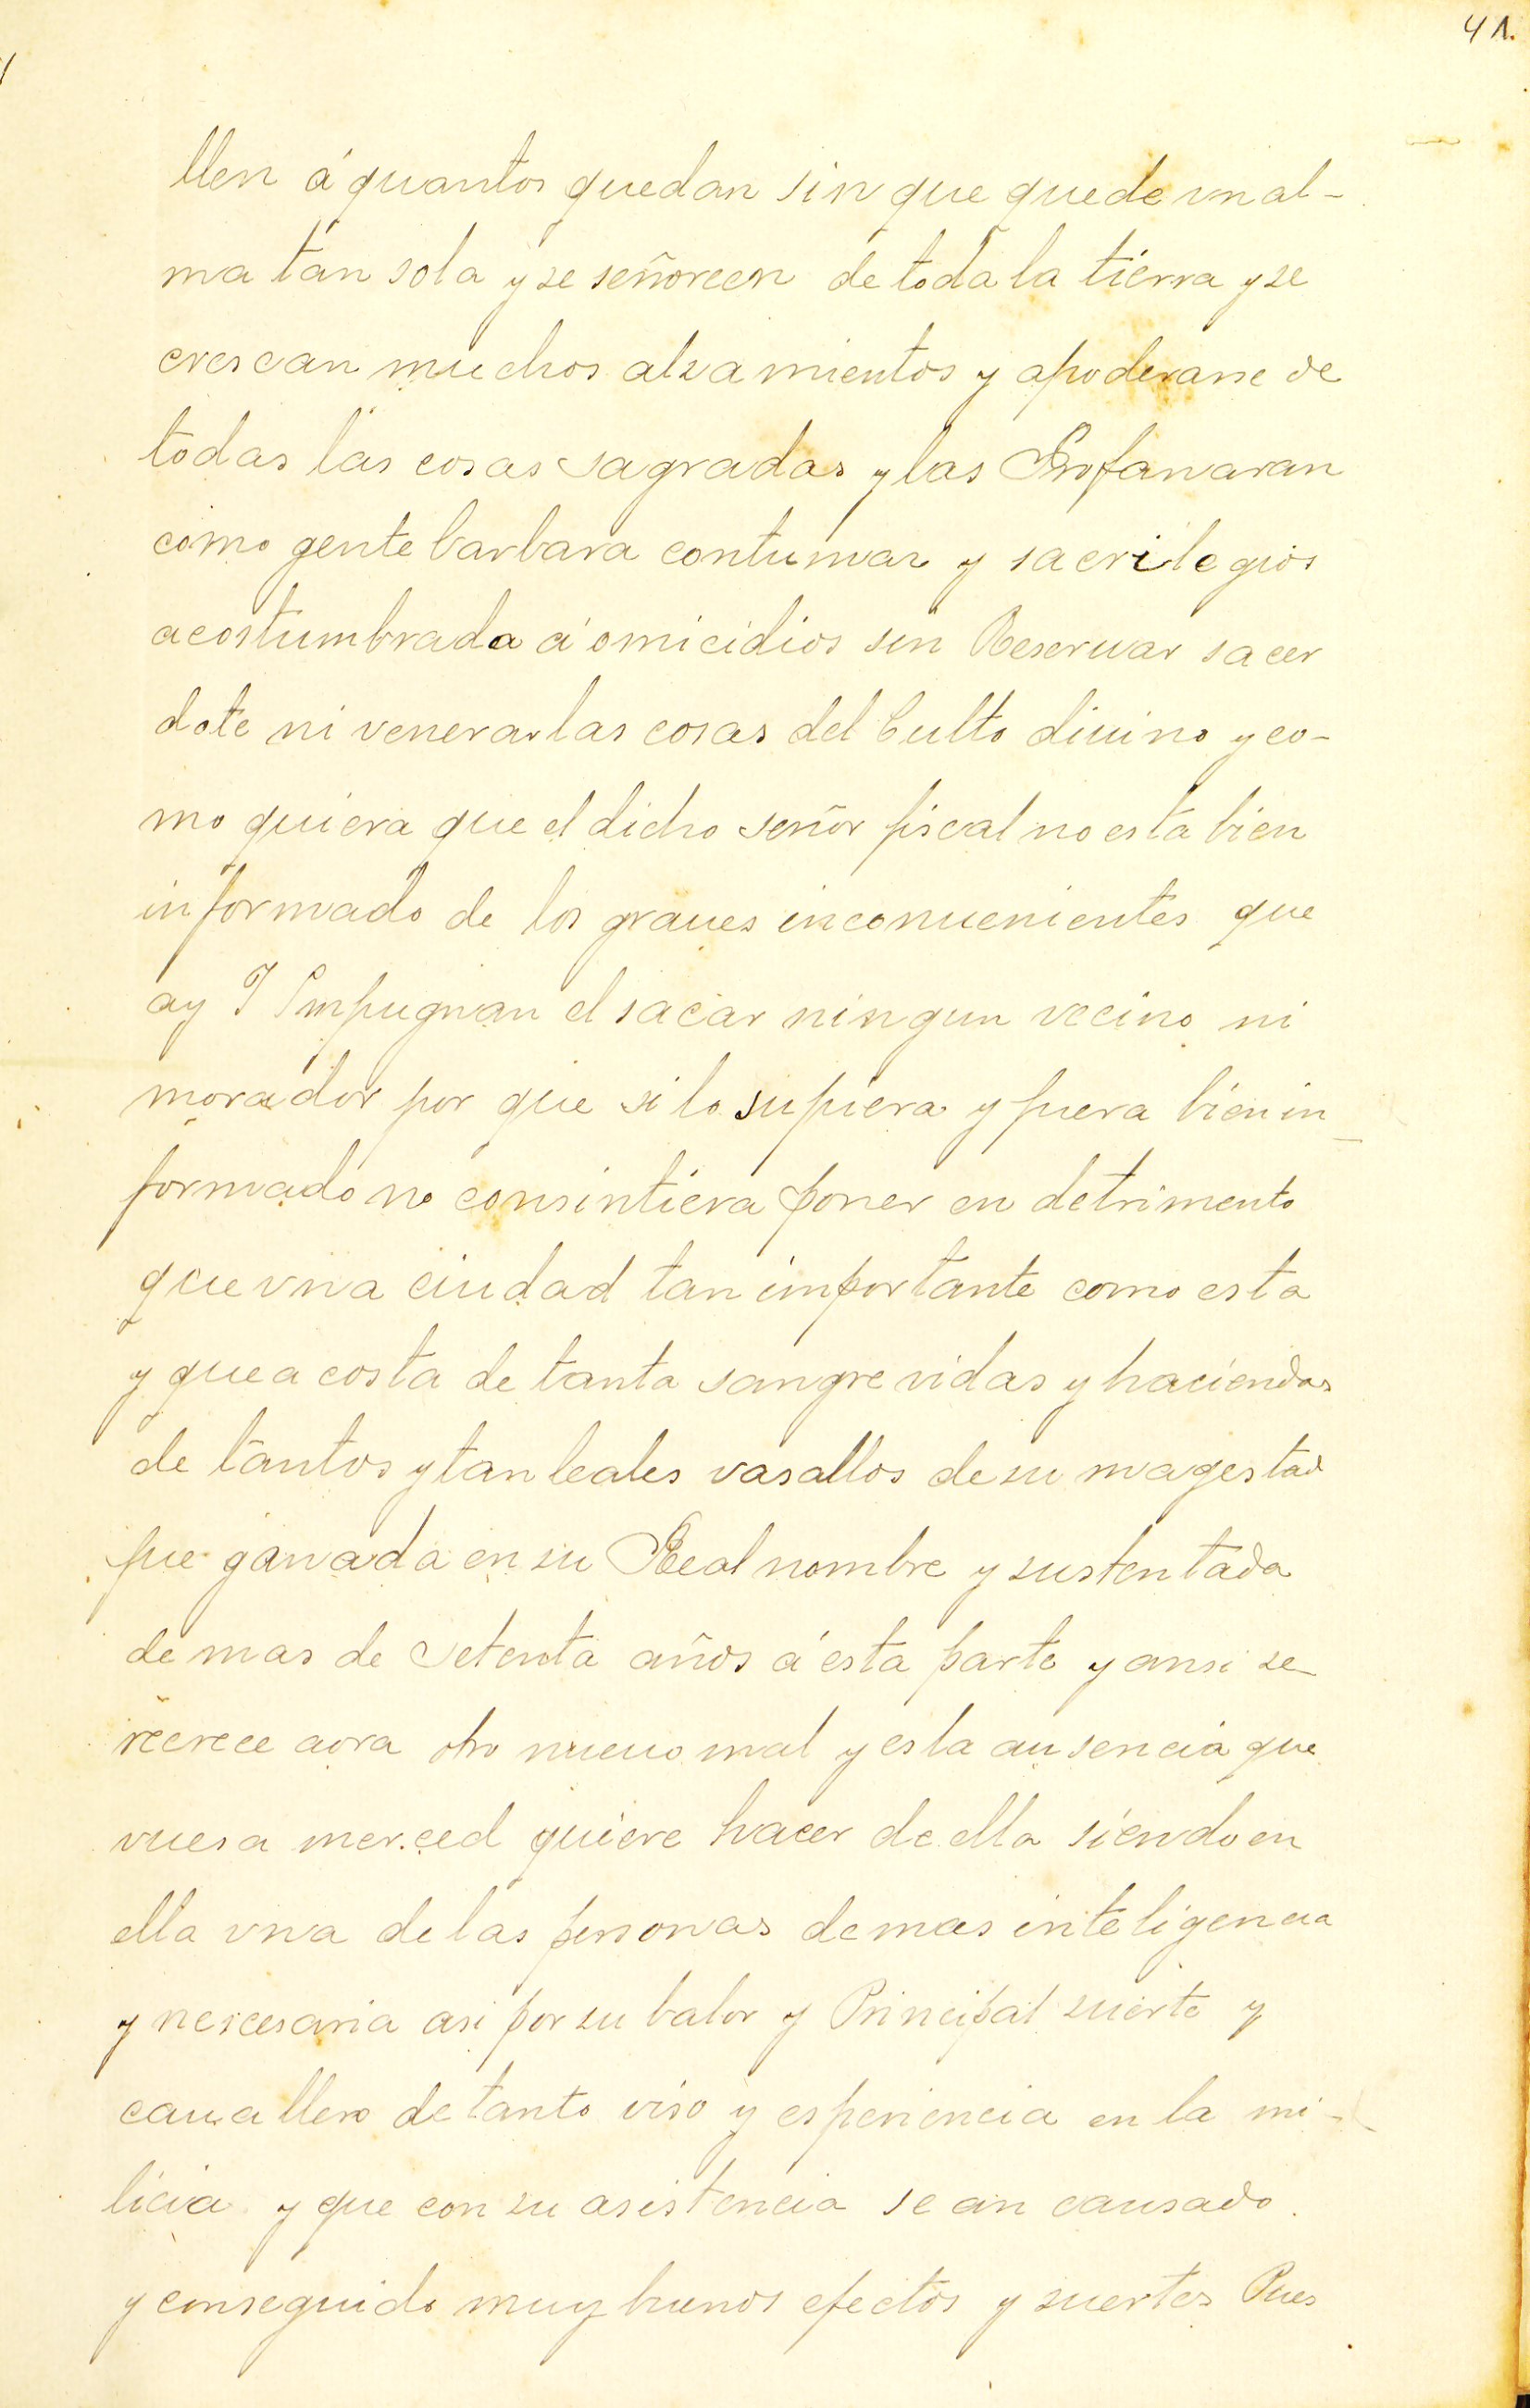 41.
llen á quantos quedan sin que quede vn al-
ma tan sola y se señoreen de toda la tierra y se
crescan muchos alzamientos y apoderarse de
todas las cosas sagradas y las Profanaran
como gente barbara contumaz y sacrilegios
acostumbrada á omicidios sin Reseruar sacer
dote ni venerar las cosas del Culto diuino y co-
mo quiera que el dicho señor fiscal no esta bien
informado de los graues inconuenientes que
ay I Impugnan el sacar ningun vecino ni
morador por que si lo supiera y fuera bien in_
formado no consintiera poner en detrimento
que vna ciudad tan importante como esta
y que a costa de tanta sangre vidas y haciendas
de tantos y tan leales vasallos de su magestad
fue ganada en su Real nombre y sustentada
de mas de setenta años á esta parte y ansi se
recrece aora otro nueuo mal y es la ausencia que
vuesa merced quiere hacer de ella siendo en
ella vna de las personas de mas inteligencia
y nescesaria asi por su balor y Principal suerte y
cauallero de tanto viso y esperiencia en la mi-
licia y que con su asistencia se an causado
y conseguido muy buenos efectos y suertes Pues